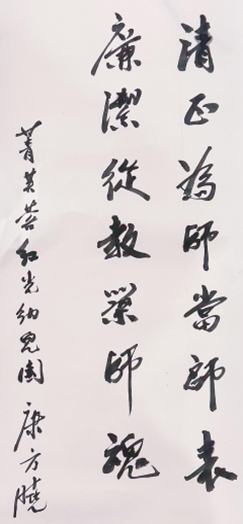 清正為師當師表
廉潔從教榮師魂
菁英荟红光幼兒園 康方曉